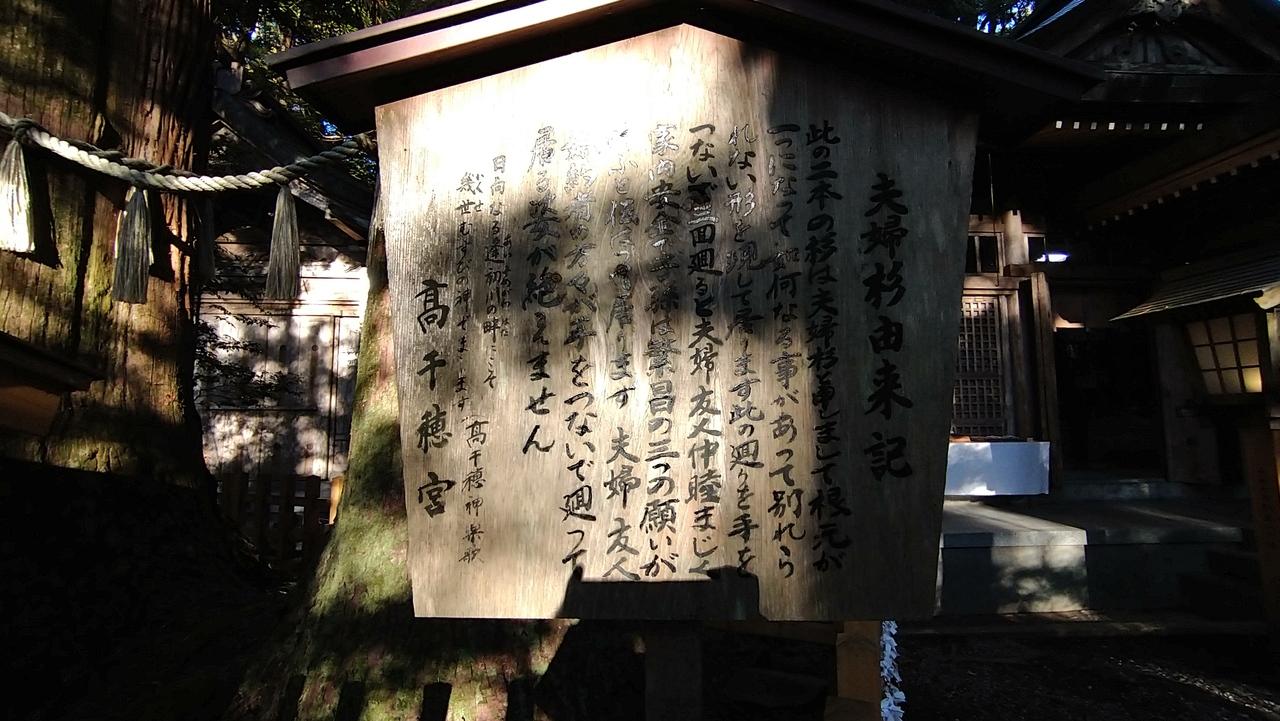 夫婦杉由来記
此の二本の杉は夫婦杉と申しまして根元が
一つになって如何なる事があって別れら
れない形を現して居ります此の廻りを手を
つないで三回廻ると夫婦友人仲睦まじく
家内安全で子孫は繁昌の三つの願いが
ふと伝はつて居ります 夫婦 友人
の方々が手をつないで廻って
居る姿が絶えません
日向なる逢初川の畔にこそ
幾世むすびの神ぞまします
いくせ
高千穂神楽歌
髙千穂宮